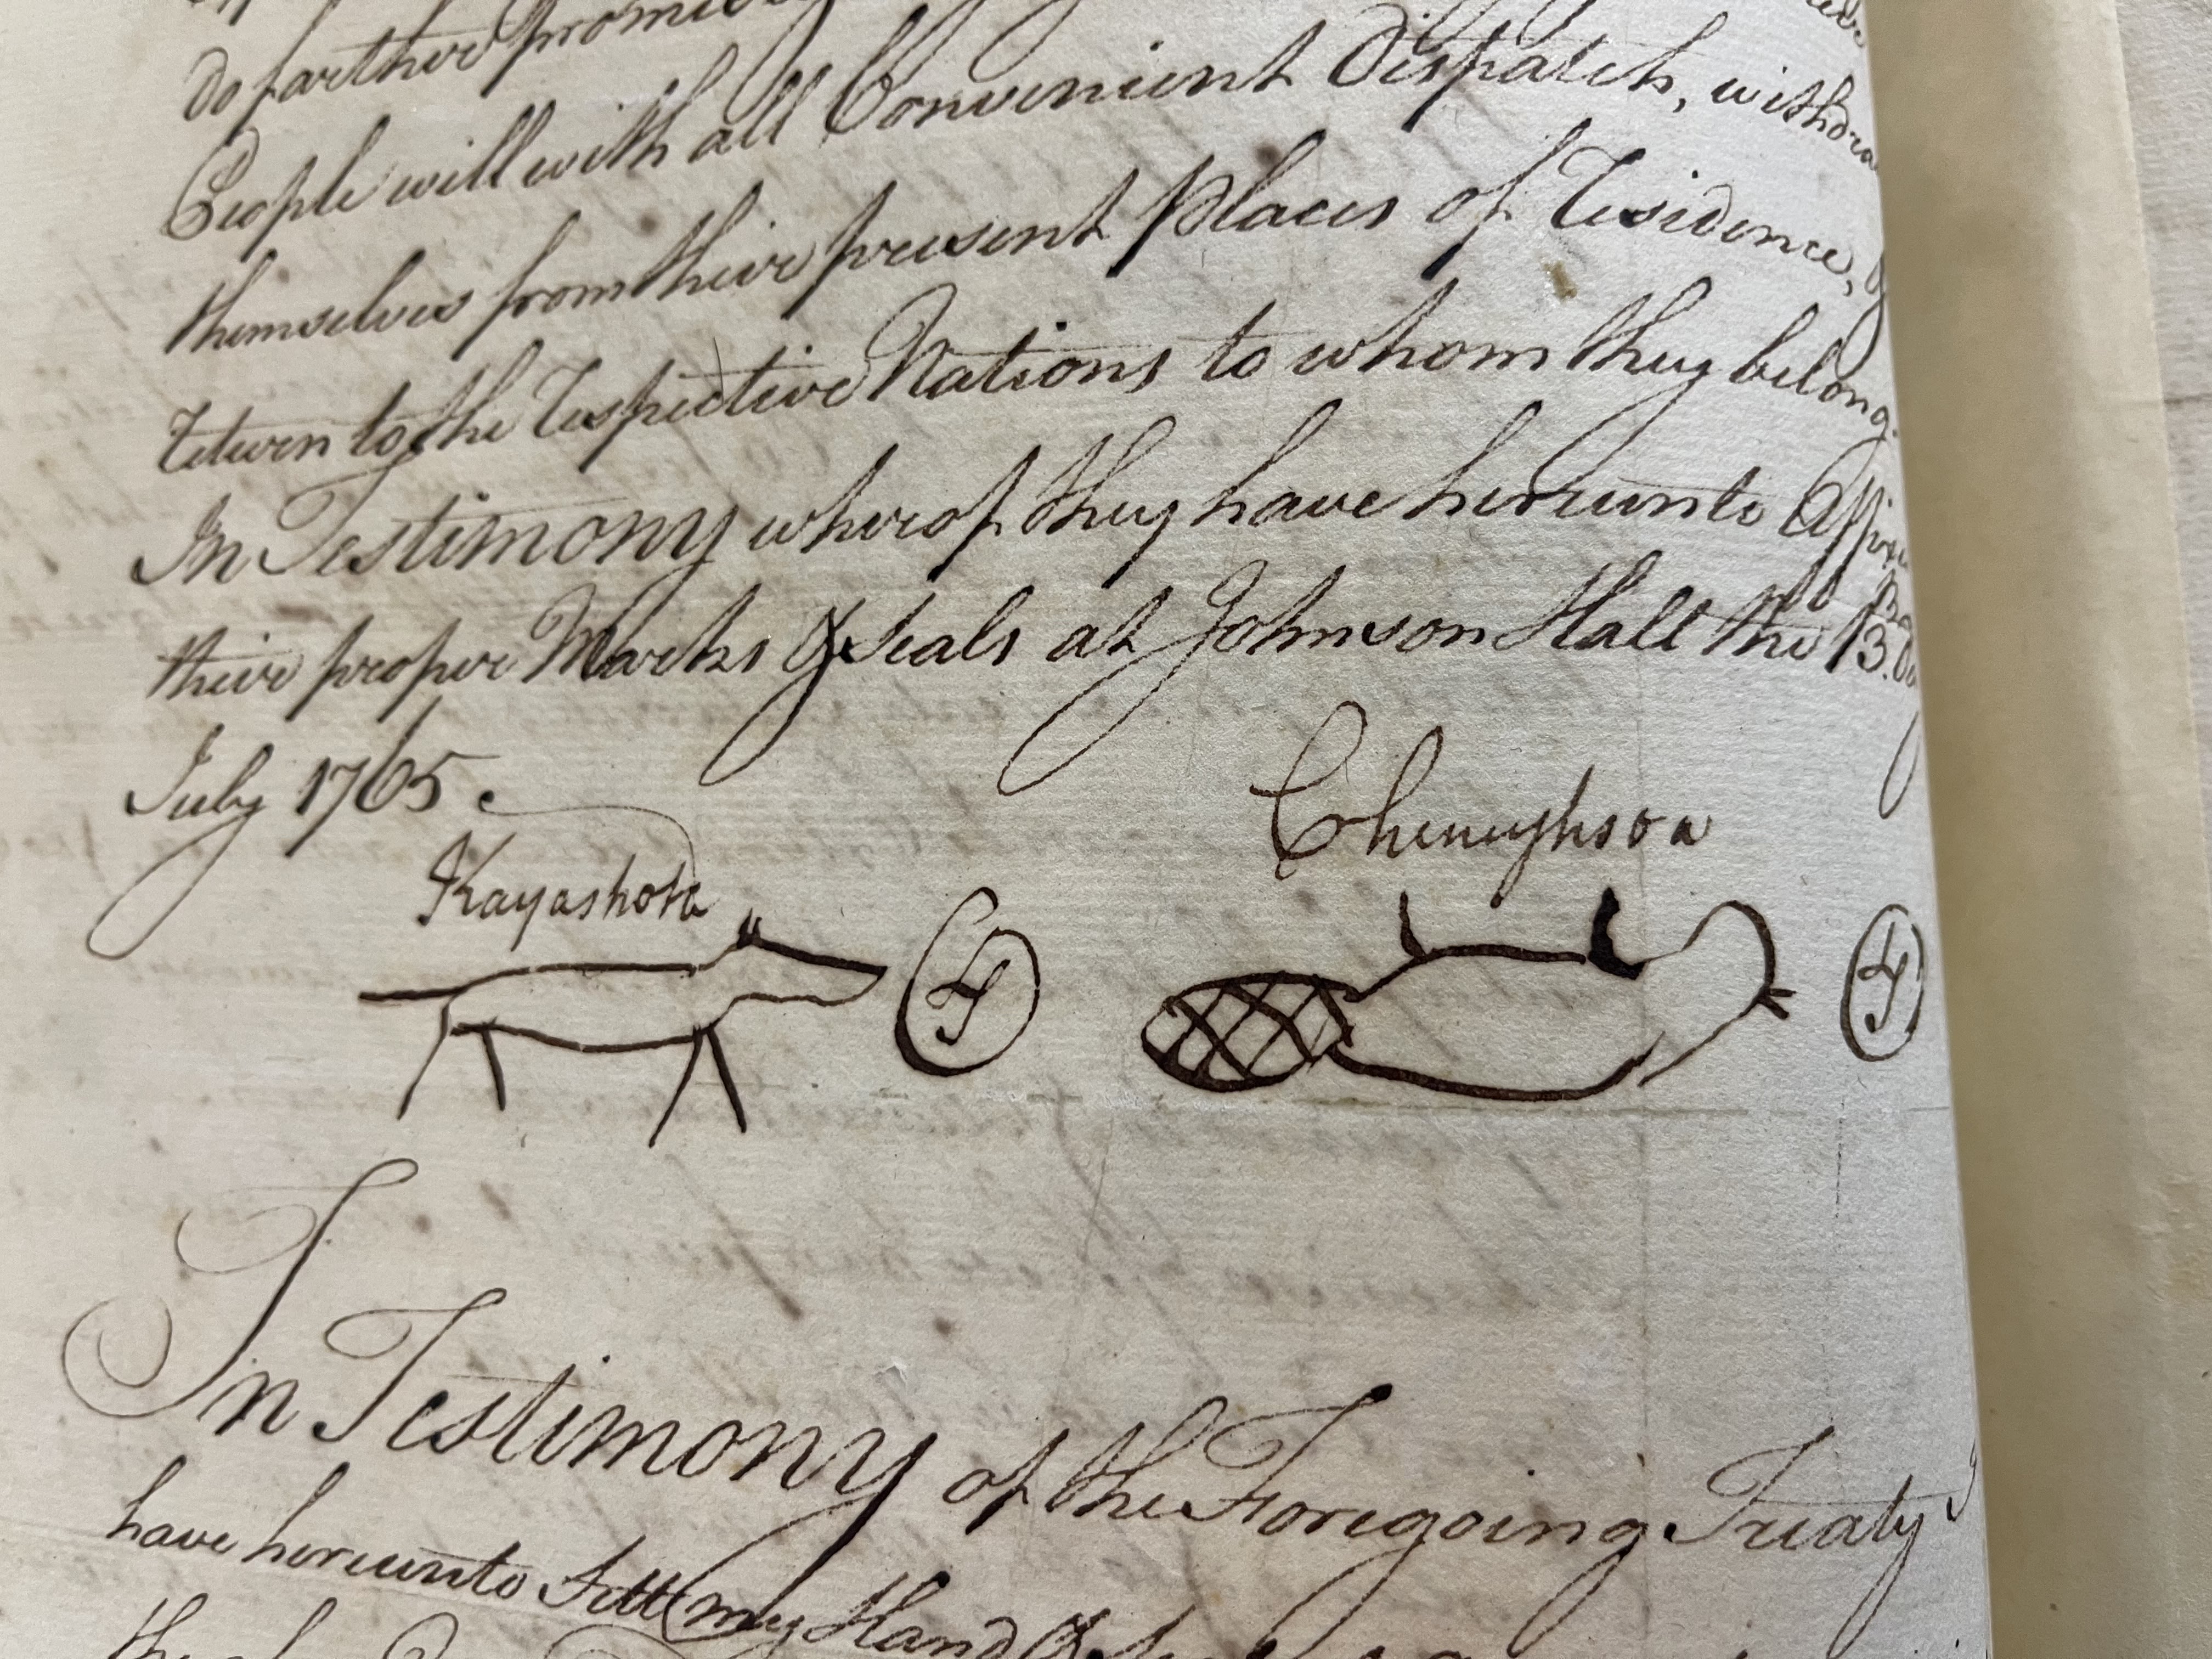 do farther promise
People will with all Convenient Dispatch, withdra
themselves from their present Places of Residence, &
Return to the Respective Nations to whom they belong.
In Testimony wherof they have hereunto Affixed
their proper Marks & Seals at Johnson Hall the 13. Day
July 1765.
Kayashota Cheneyhsoa
In Testimony of the Foregoing Treaty I
have hereunto Sett my Hand &